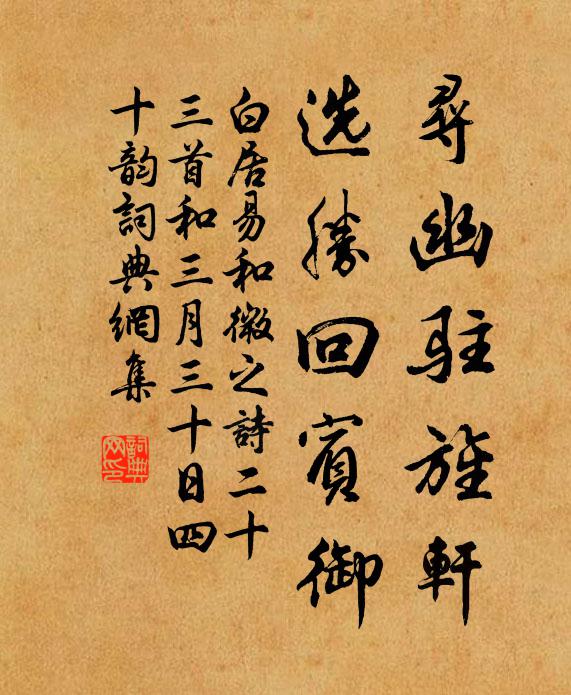 尋幽駐旌軒
选勝回賓御
白居易和微之詩二十
三首和三月三十日四
十韵詞典網集
詞典网印